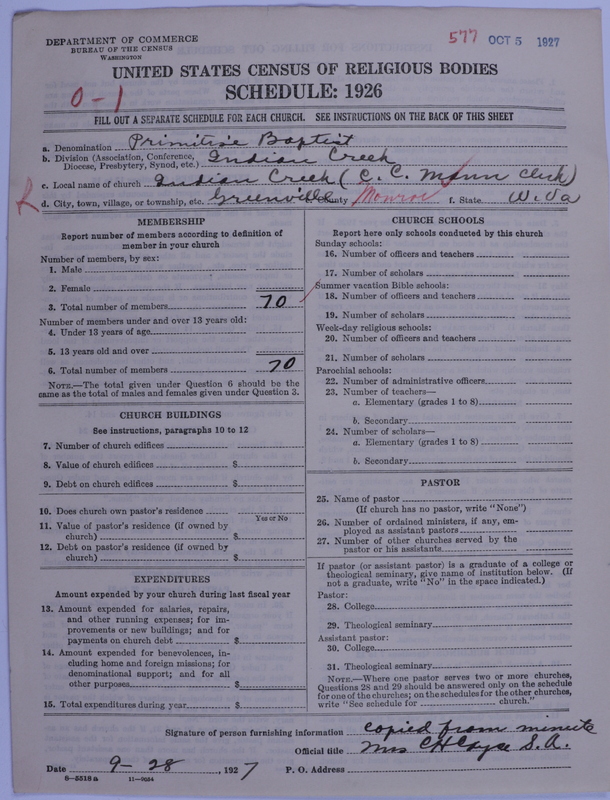 DEPARTMENT OF COMMERCE
BUREAU OF THE CENSUS
WASHINGTON
577 OCT 5 1927
UNITED STATES CENSUS OF RELIGIOUS BODIES
SCHEDULE: 1926
0-1
FILL OUT A SEPARATE SCHEDULE FOR EACH CHURCH. SEE INSTRUCTIONS ON THE BACK OF THIS SHEET
a. Denomination Primitive Baptist
b. Division (Association, Conference, Diocese, Presbytery, Synod, etc.) Indian Creek
c. Local name of church Indian Creek (C. C. Mann Clerk)
R d. City, town, village, or township, etc. Greenville e. County Monroe f. State W. Va
MEMBERSHIP
Report number of members according to definition of
member in your church
Number of members, by sex:
1. Male
2. Female
3. Total number of members 70
Number of members under and over 13 years old:
4. Under 13 years of age
5. 13 years old and over
6. Total number of members 70
NOTE.—The total given under Question 6 should be the
same as the total of males and females given under Question 3.
CHURCH BUILDINGS
See instructions, paragraphs 10 to 12
7. Number of church edifices
8. Value of church edifices $
9. Debt on church edifices $
10. Does church own pastor's residence
Yes or No
11. Value of pastor's residence (if owned by
church) $
12. Debt on pastor's residence (if owned by
church) $
EXPENDITURES
Amount expended by your church during last fiscal year
13. Amount expended for salaries, repairs,
and other running expenses; for im-
provements or new buildings; and for
payments on church debt $
14. Amount expended for benevolences, in-
cluding home and foreign missions; for
denominational support; and for all
other purposes $
15. Total expenditures during year $
CHURCH SCHOOLS
Report here only schools conducted by this church
Sunday schools:
16. Number of officers and teachers
17. Number of scholars
Summer vacation Bible schools:
18. Number of officers and teachers
19. Number of scholars
Week-day religious schools:
20. Number of officers and teachers
21. Number of scholars
Parochial schools:
22. Number of administrative officers
23. Number of teachers—
a. Elementary (grades 1 to 8)
b. Secondary
24. Number of scholars—
a. Elementary (grades 1 to 8)
b. Secondary
PASTOR
25. Name of pastor
(If church has no pastor, write "None")
26. Number of ordained ministers, if any, em-
ployed as assistant pastors
27. Number of other churches served by the
pastor or his assistants
If pastor (or assistant pastor) is a graduate of a college or
theological seminary, give name of institution below. (If
not a graduate, write "No" in the space indicated.)
Pastor:
28. College
29. Theological seminary
Assistant pastor:
30. College
31. Theological seminary
NOTE.—Where one pastor serves two or more churches,
Questions 28 and 29 should be answered only on the schedule
for one of the churches; on the schedules for the other churches,
write "See schedule for church."
Signature of person furnishing information copied from minute
Official title Mrs C H Cayce S.A.
Date 9-28, 1927 P. O. Address
8-5518 a 11-9054